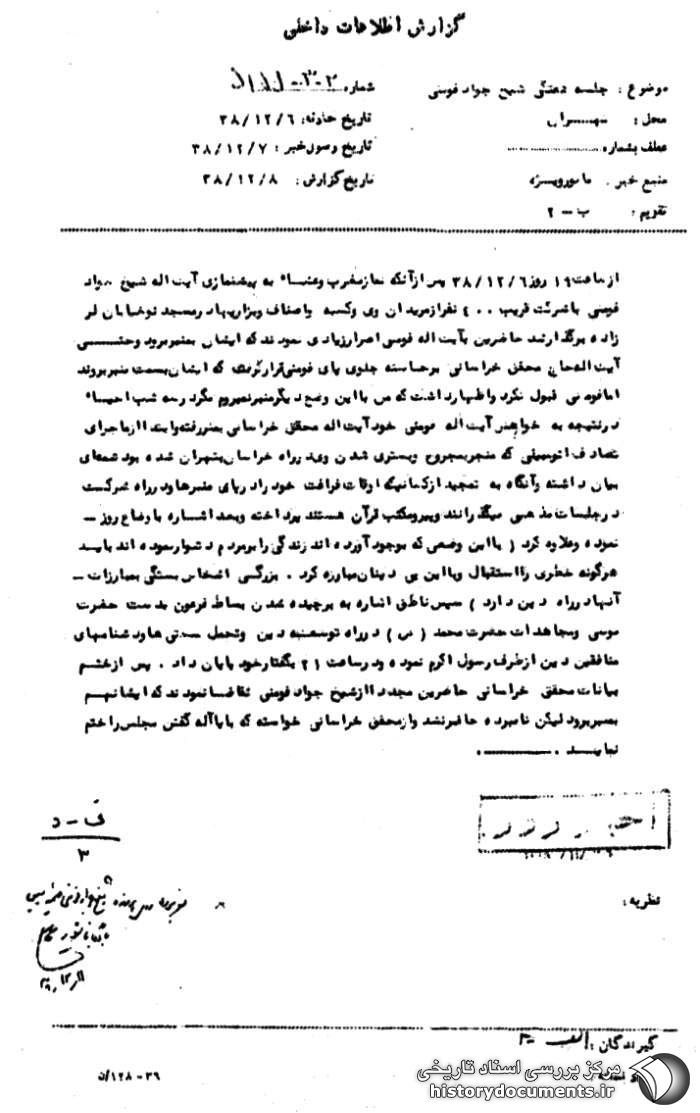 گزارش اطلاعات داخلی
موضوع : جلسه هفتگی شیخ جواد فومنی
شماره
محل : تهــران
تاریخ حادثه: ۳۸/۱۲/۶
عطف بشماره
تاریخ وصول خبر : ۳۸/۱۲/۷
منبع خبر . مامورویـژه
تاریخ گزارش: ۳۸/۱۲/۸
تقویم : ب – ۲
از ساعت ۱۹ روز ۳۸/۱۲/۶ پس از آنکه نماز مغرب وعشاء به پیشنمازی آیت اله شیخ جواد
فومنی باشرکت قریب ۴۰۰ نفر از مریدان وی وکسبه واصناف وبزاریها در مسجد نو خیابان لر
زاده برگذار شد حاضرین بآیت اله فومنی اصرار زیادی نمودند که ایشان بمنبر برود وحتــی
آیت اله حاج محقق خراسانی برخاسته جلوی پای فومنی قرار گرفت که ایشان بسمت منبر بروند
اما فومنی قبول نکرد واظهار داشت که من با این وضع دیگر منبر نمیروم مگر در سه شب احیاء
در نتیجه به خواهش آیت اله فومنی خود آیت اله محقق خراسانی بمنبر رفته وابتدا از ماجرای
تصادف اتومبیلی که منجر بمجروح وبستری شدن وی در راه خراسان بتهران شده بود شمه‌ای
بیان داشته وآنگاه به تمجید از کسانیکه اوقات فراغت خود را در پای منبرها ودر راه شرکت
در جلسات مذهبی میگذرانند وپیرو مکتب قرآن هستند پرداخته وبعد اشاره باوضاع روز –
نموده وعلاوه کرد ( با این وضعی که بوجود آورده اند زندگی را بر مردم دشوار نموده اند بایـد
هرگونه خطری را استقبال وبا این بی دینان مبارزه کرد . بزرگی اشخاص بستگی بمبارزات –
آنها در راه دین دارد ) سپس ناطق اشاره به برچیده شدن بساط فرعون بدست حضرت
موسی ومجاهدات حضرت محمد ( ص ) در راه توسعه دین وتحمل سختی ها ودشنامهای
منافقین دین از طرف رسول اکرم نموده ودر ساعت ۲۱ بگفتار خود پایان داد . پس از ختم
بیانات محقق خراسانی حاضرین مجددا از شیخ جواد فومنی تقاضا نمودند که ایشان هم
بمنبر برود لیکن نامبرده حاضر نشد واز محقق خراسانی خواسته که با یا اله گفتن مجلس را ختم
نماینـد .
ف – د
۳
نظریه :
گیرندگان : الف – ۳
۳۶ – ۱۲۸/ن
مرکز بررسی اسناد تاریخی
historydocuments.ir